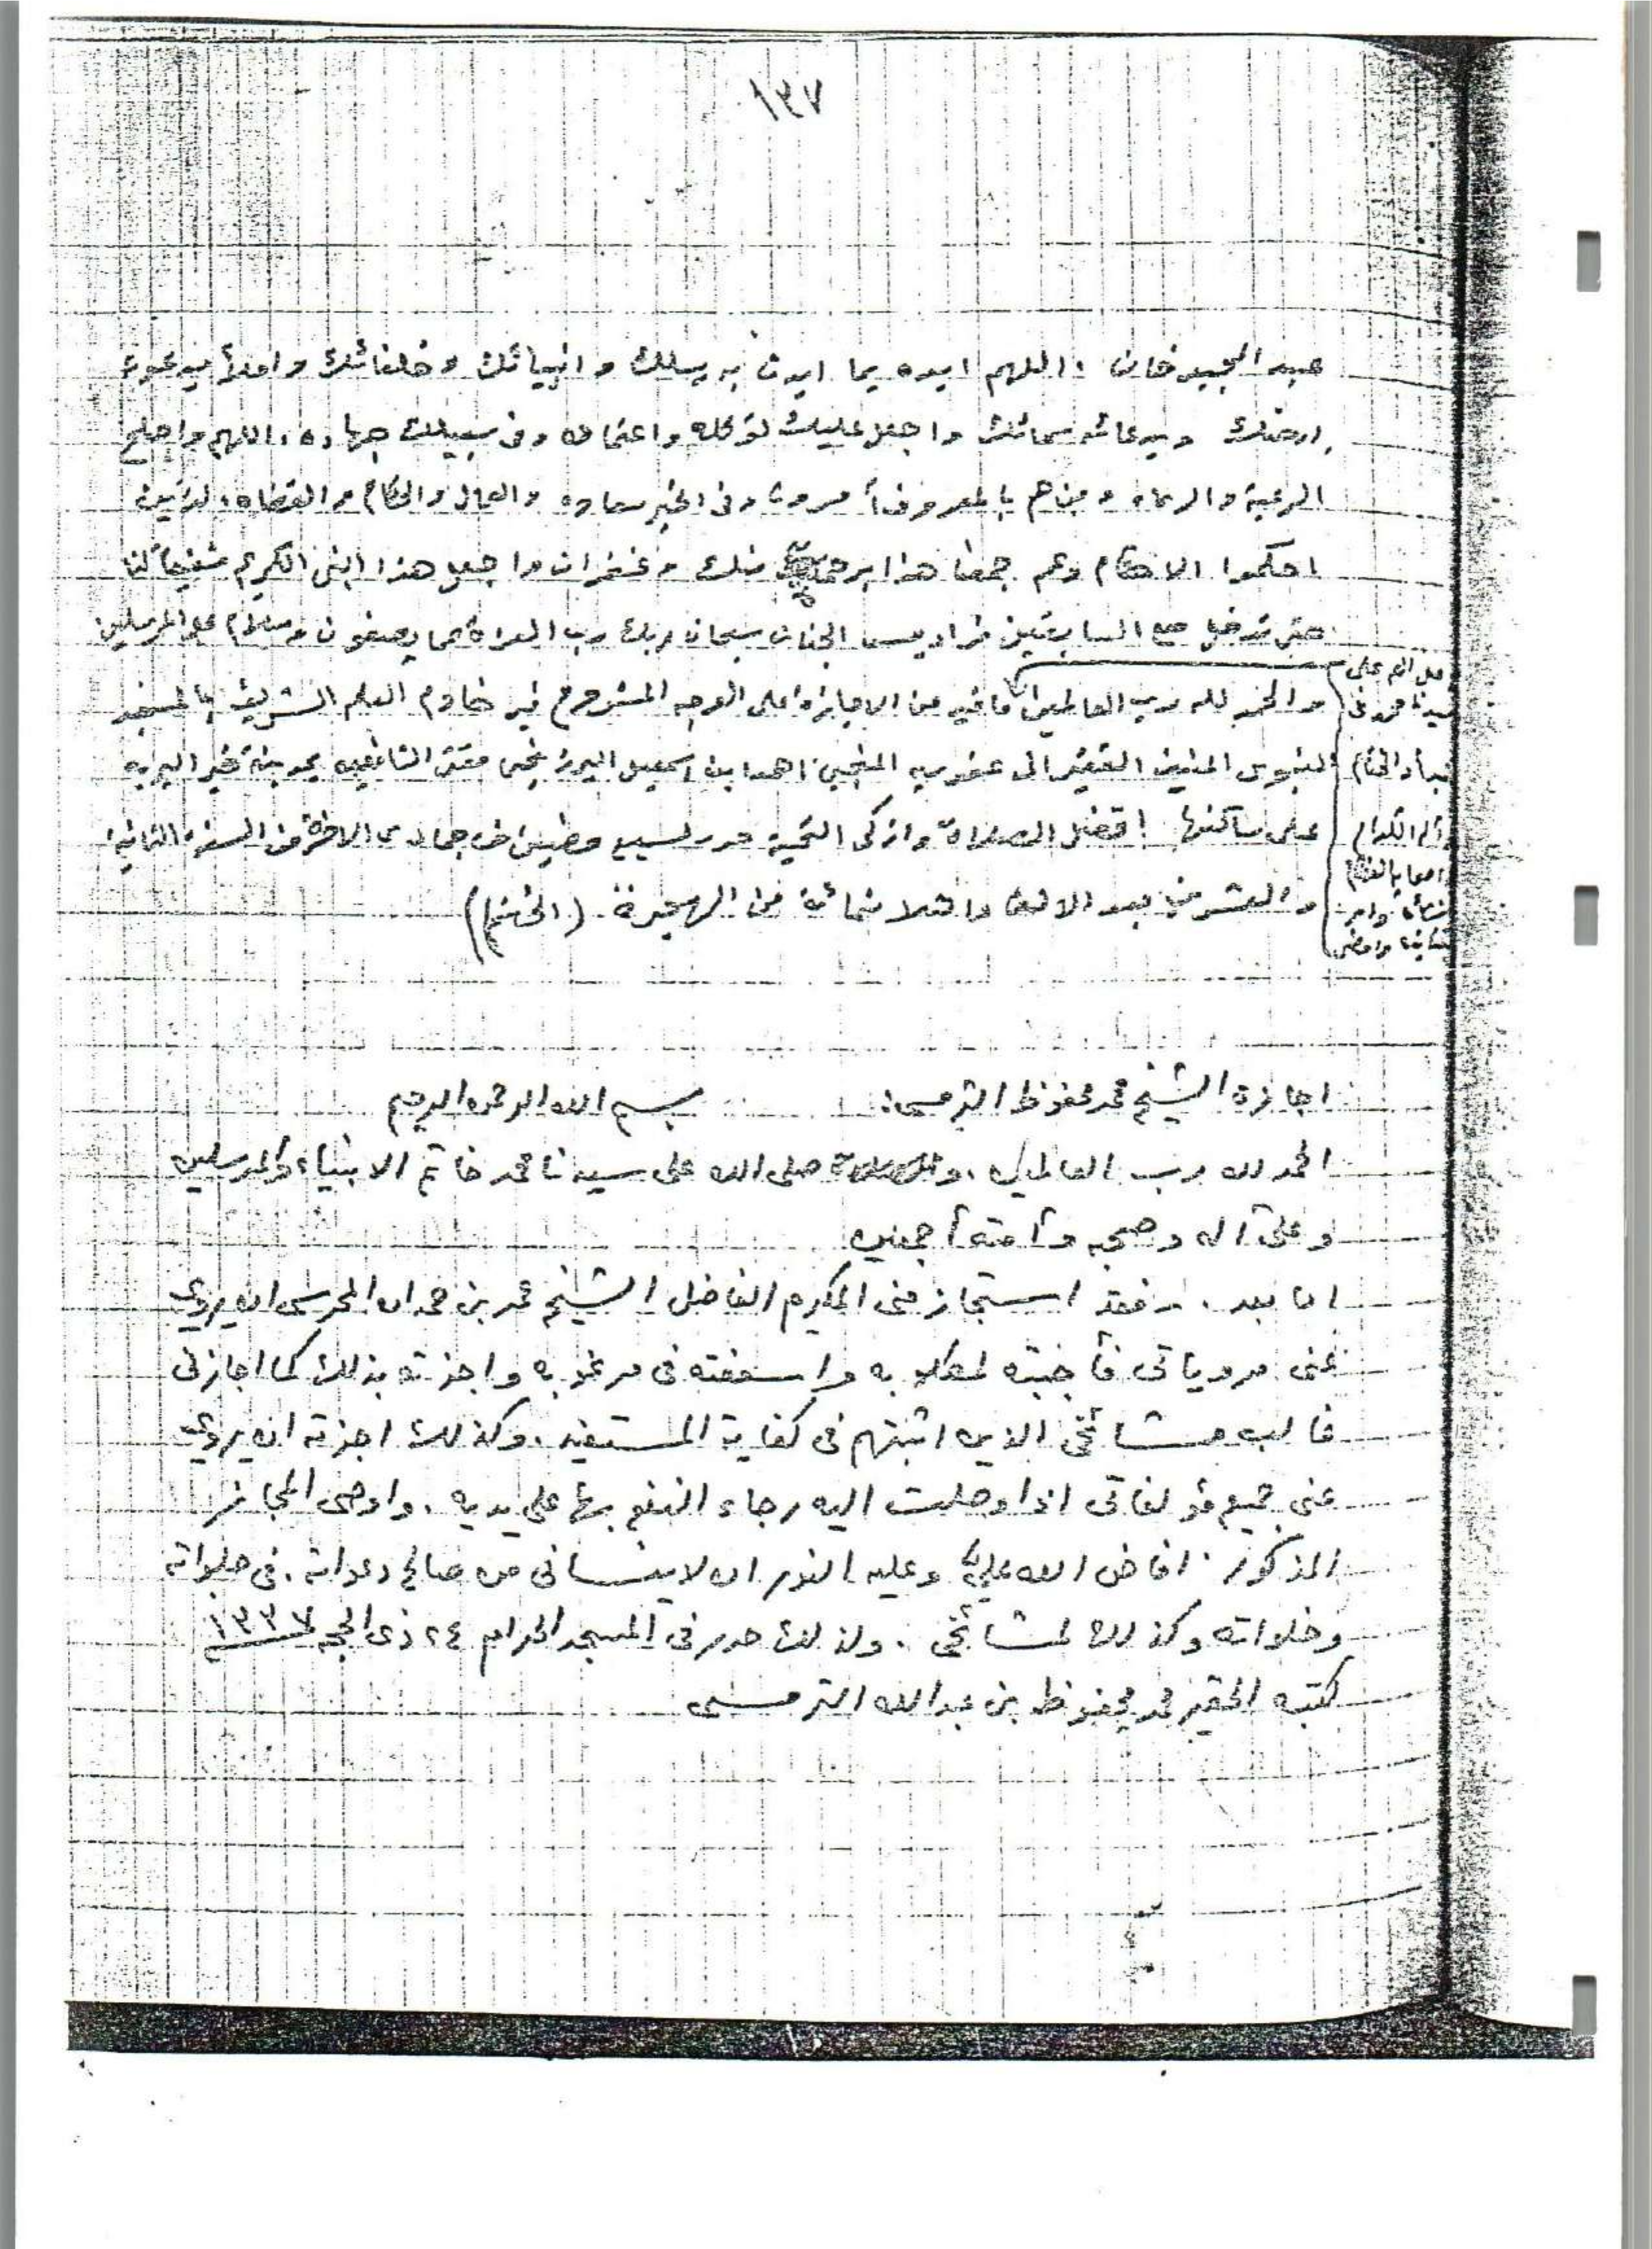 ١٣٧
عبد المجيد خان، اللهم ايده بما ايدت به رسلك و انبيائك و خلفائك و املأ
ارضك و سمائك و اجعل عليك توكله و اعتماده وفى سبيلك جهاده، اللهم واصلح
الرعية والرعاه و من هم بالمعروف وفى الخير والعمال والحكام والقضاه، الذين
احكموا الاحكام وعم جمعنا هذا برحمة منك و غفران واجعل هذا النبى الكريم شفيعاً لنا
حتى ندخل مع السابقين فراديس الجنان سبحان ربك رب العزة عما يصفون وسلام على المرسلين
والحمد لله رب العالمين ما فيه من الاجازة على الوجه المشروح فيه خادم العلم الشريف بالمسجد
النبوى المنيف الفقير الى عفو ربه المنجى احمد بن اسمعيل البرزنجى مفتى الشافعيه بمدينة خير البريه
على ساكنها افضل الصلاة وازكى التحية حرر لسبع مضين من جمادى الاخرة من السنة الثانية
والعشرين بعد الالف وثلاثمائة من الهجرة (الختم)
صل اللهم على
سيدنا محمد فى
البدأ والختام
وآله الكرام
واصحابه
اجازة الشيخ محمد محفوظ الترمسى: بسم الله الرحمن الرحيم
الحمد لله رب العالمين، و صلى الله على سيدنا محمد خاتم الانبياء والمرسلين
وعلى آله وصحبه وأمته أجمعين
اما بعد، فقد استجاز منى المكرم الفاضل الشيخ عمر بن حمدان المحرسى ان يروي
عنى مروياتى فأجبته لمطلوبه واسعفته فى مرغوبه واجزته بذلك كما اجازنى
غالب مشائخى الذين اثبتهم فى كفاية المستفيد، وكذلك اجزته ان يروي
عنى جميع مؤلفاتى اذا وصلت اليه رجاء النفع بها على يديه، واوصى المجاز
المذكور افاض الله عليّ وعليه النور ان لا ينسانى من صالح دعواته، فى جلواته
وخلواته وكذلك لمشائخى، ولذلك حرر فى المسجد الحرام ٢٤ ذى الحجه ١٣٣٧
كتبه الحقير محمد محفوظ بن عبد الله الترمسى